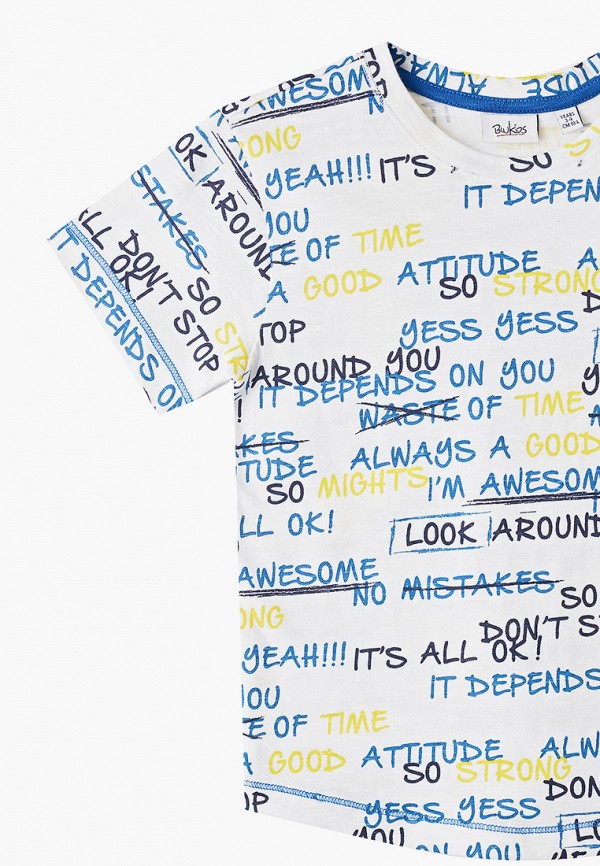 AWESOM
NO
STRONG
OK!
YEAH!!! IT'S
SO
IT DEPEN
BWKiDS
YEARS
AROUND
YOU
STAKES
OF TIME
A GOOD ATTITUDE
ALL DON'T STOP
SO STRONG
TOP
YESS YESS
IT DEPENDS ON
AROUND YOU
IT DEPENDS ON YOU
WASTE OF TIME
AKES
TUDE
ALWAYS A GOOD
SO MIGHTS
I'M AWESOM
LL OK!
LOOK AROUND
AWESOME
NO MISTAKES
SO
ONG
DON'T S
YEAH!!! IT'S ALL OK!
IT DEPENDS
YOU
E OF TIME
A GOOD ATTITUDE
ALW
SO STRONG
DON
OP
YESS YESS
LO
YOU